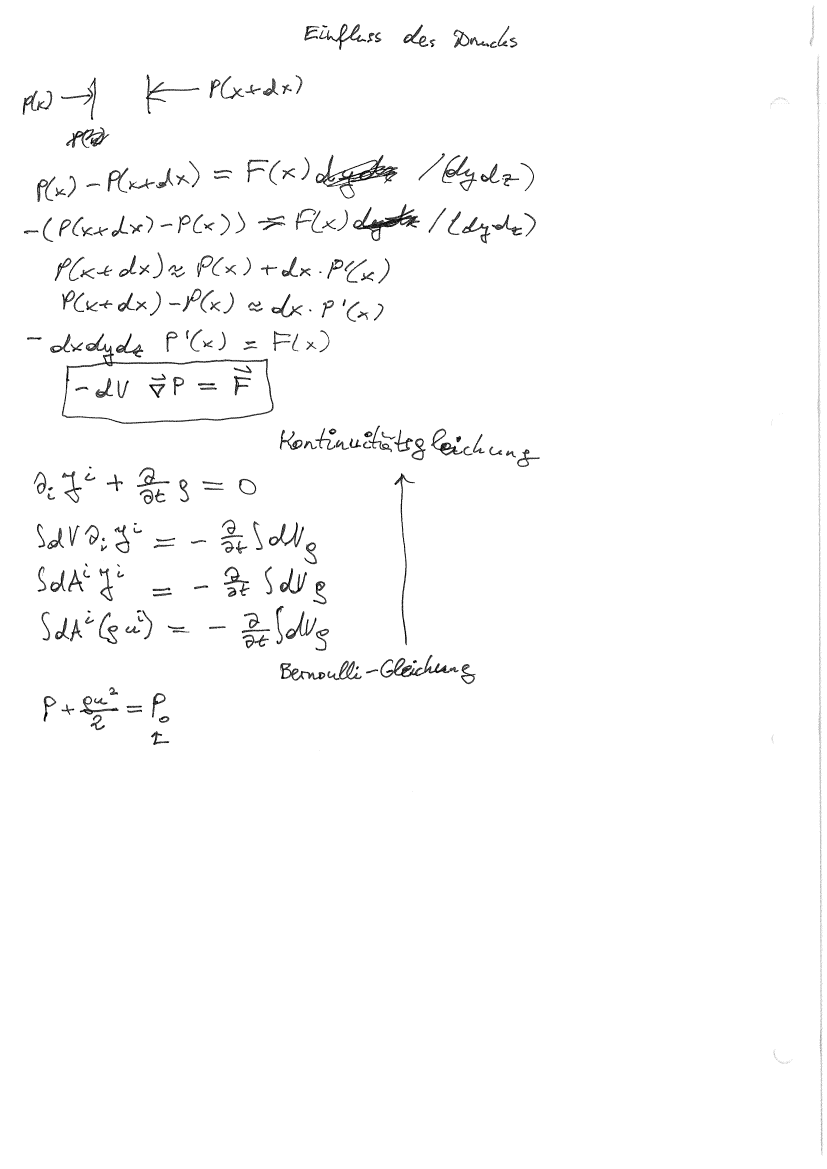 Einfluss des Drucks
P(x) → ← P(x+dx)
P(x) − P(x+dx) = F(x) /(dydz)
−(P(x+dx)−P(x)) = F(x) /(dydz)
P(x+dx) ≈ P(x) + dx · P'(x)
P(x+dx) − P(x) ≈ dx · P'(x)
− dxdydz P'(x) = F(x)
−dV ∇⃗P = F⃗
Kontinuitätsgleichung
∂ᵢ jⁱ + ∂/∂t ρ = 0
∫dV ∂ᵢ jⁱ = − ∂/∂t ∫dVρ
∫dAⁱ jⁱ = − ∂/∂t ∫dVρ
∫dAⁱ(ρuⁱ) = − ∂/∂t ∫dVρ
Bernoulli-Gleichung
P + ρu²/2 = P₀
↑